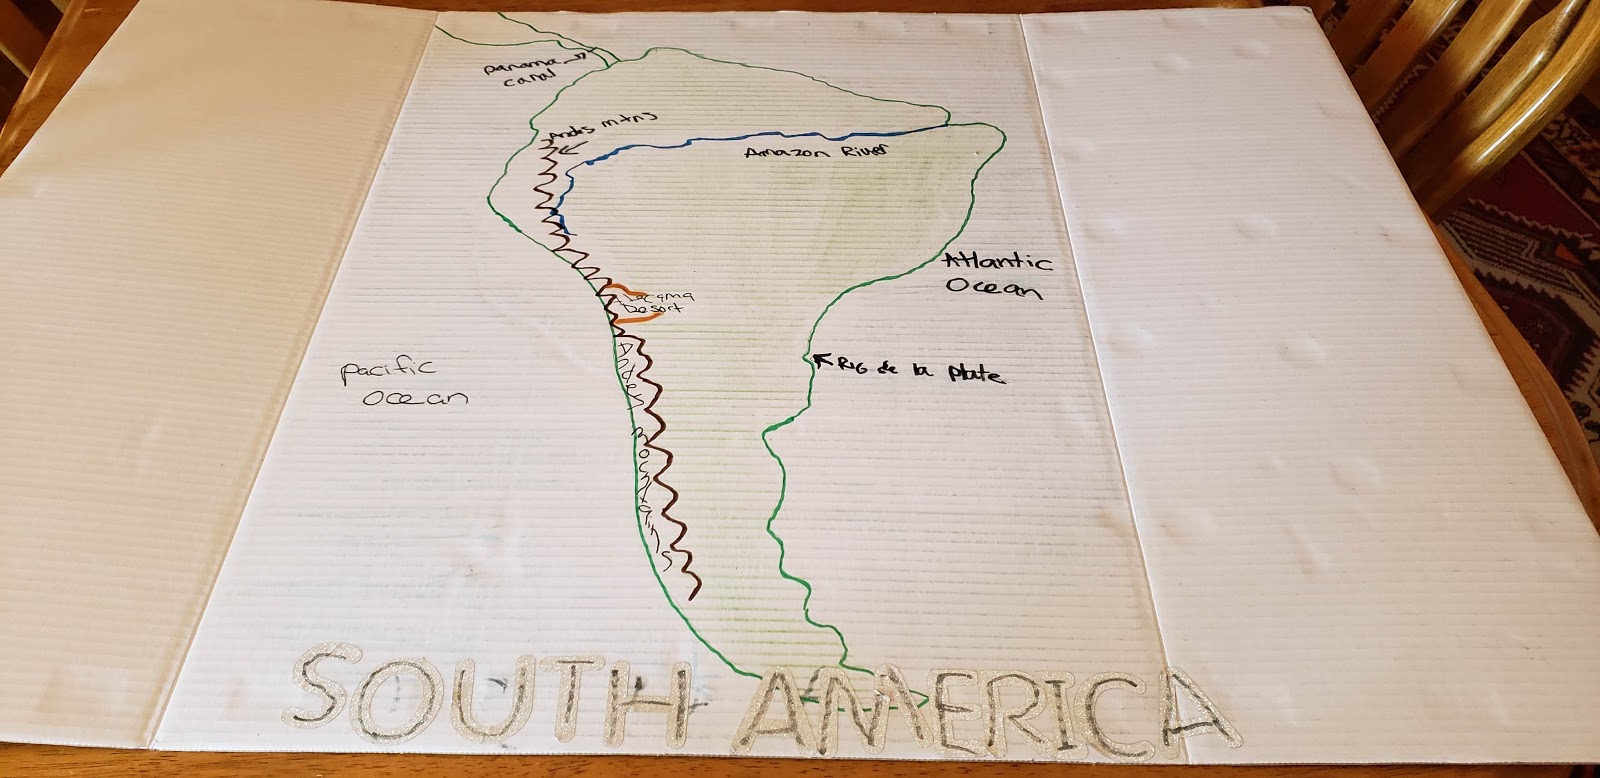 panama
canal
Andes mtns
Amazon River
Atlantic
Ocean
Atacama
Desort
Rio de la plate
pacific
Ocean
Andes Mountains
SOUTH AMERICA